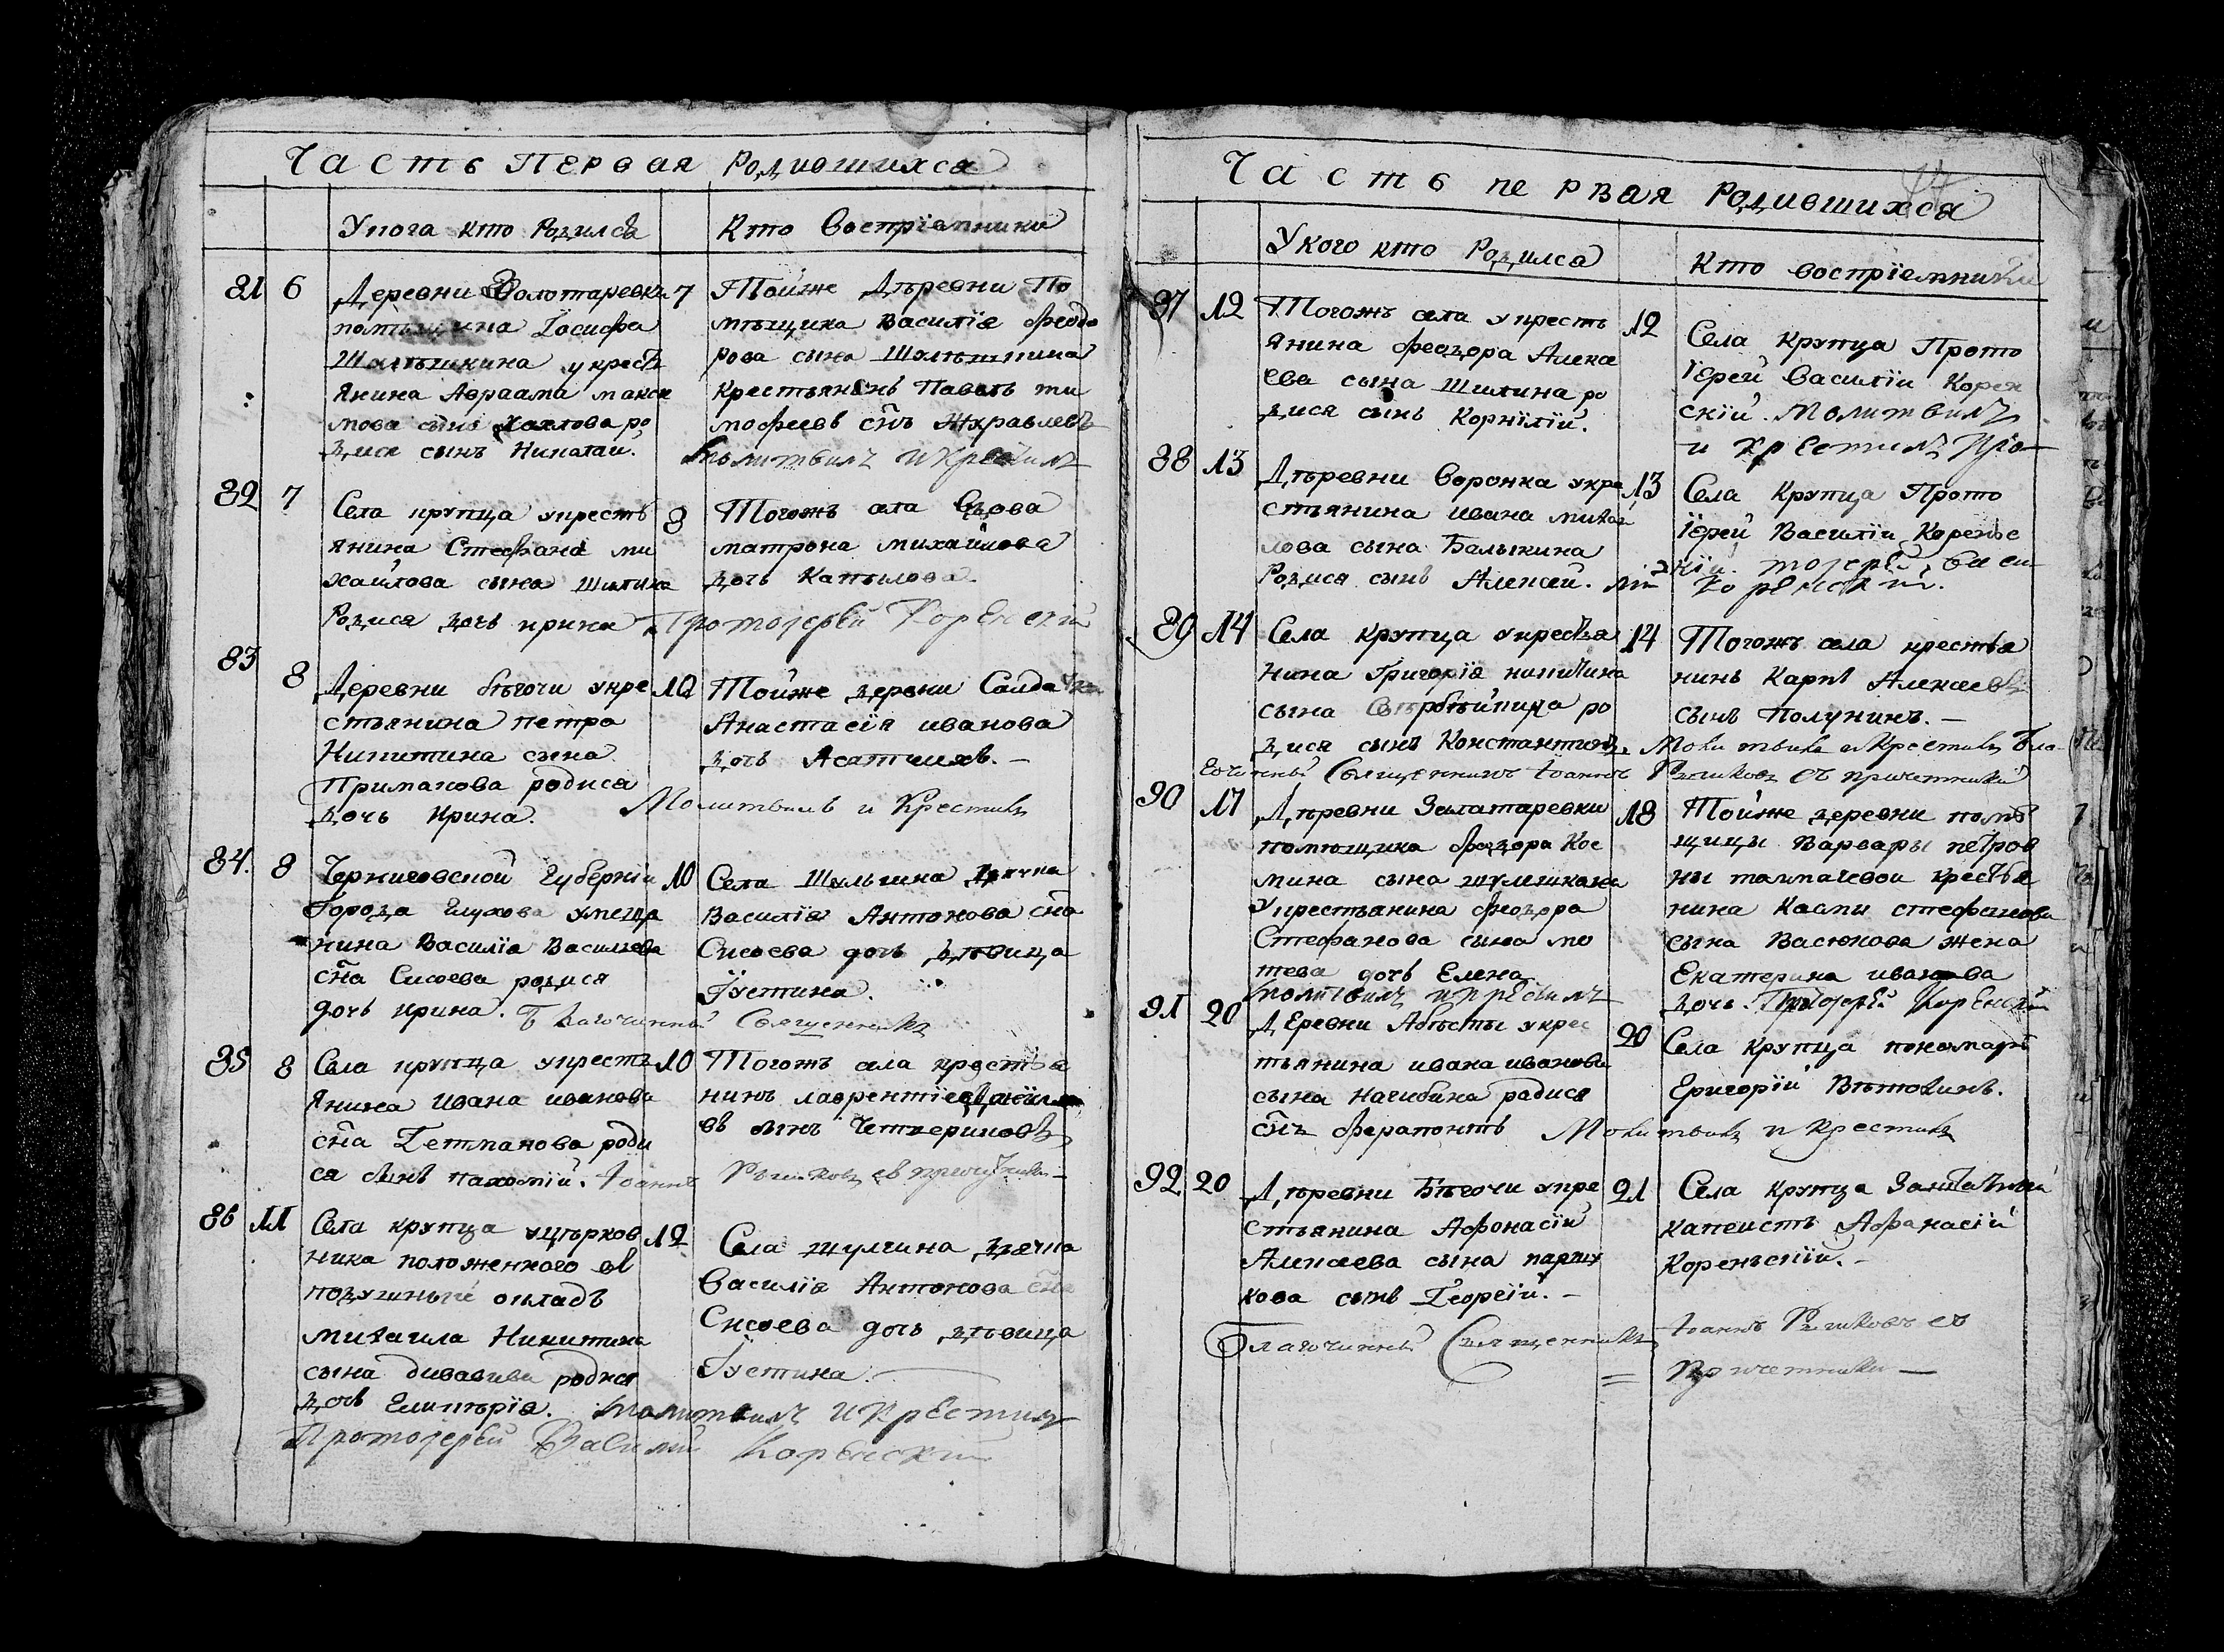 Часть Первая Родившихся
Укого кто Родился
Кто Восприемники
81 6
Деревни Золотаревки
помещика Іосифа
укресть
янина Авраама макси
мова сына Хахлова ро
дися сынъ Николай.
7
Тойже Дѣревни По
мѣщика Василія феодо
рова сына
крестьянинъ Павелъ ти
мофеевъ сн̃ъ Журавлевъ
молитвилъ и Крестилъ
82 7
Села крупца укресть
янина Стефана ми
хайлова сына Шилина
Родися дочь ирина
8
Тогожъ села Вдова
матрона михайлова
дочь Капылова.
Протоіерей Коренскій
83
8
Деревни бѣгочи укре
стьянина петра
Никитина сына
Примакова родися
дочь Ирина.
10
Тойже деревни Салдатка
Анастасія иванова
дочь
Молитвилъ и Крестилъ
84. 8
Черниговской Губерніи
Города Глухова умеща
нина Василія Василиева
сн̃а Сисоева родися
дочь ирина.
10
Села Шульгина дьячка
Василія Антонова сн̃а
Сисоева дочь дѣвица
Іустина.
Благочинный Священникъ
85 8
Села крупца укресть
янина Ивана иванова
сн̃а Гетманова роди
ся сынъ пахомій.
10
Тогожъ села крестья
нинъ лаврентій
въ сынъ Четвериковъ
Іоаннъ Рышковъ съ причетники
86 11
Села крупца уцѣрков
ника положеннаго въ
подушный окладъ
михаила Никитина
сына родися
дочь Гликѣрія.
12
Села шулгина дьячка
Василія Антонова сн̃а
Сисоева дочь дѣвица
Іустина.
молитвилъ и крестилъ
Протоіерей Василій Коренский
Часть первая Родившихся
Укого кто Родился
Кто восприемники
87 12
Тогожъ села укресть
янина феодора Алексе
ева сына Шилина ро
дися сынъ Корнілій.
12
Села Крупца Прото
Іерей Василіи Корен
скій. Молитвилъ
и крестилъ Про
88 13
Дѣревни Воронка укре
стьянина ивана михай
лова сына Балыкина
Родися сынъ Алексей.
13
Села Крупца Прото
Іерей Василіи Коренъс
кій. тоіерей Васи
лій Коренский.
89 14
Села Крупца укрестья
нина Григорія никитина
сына ро
дися сынъ Константинъ.
14
Тогожъ села крестья
нинъ Карпъ Алексеевъ
сынъ Полунинъ. —
Молитвилъ и Крестилъ Бла-
гочинный Священникъ Іоаннъ Рышковъ съ причетники
90 17
Дѣревни Залатаревки
помѣщика феодора Кос
мина сына шулешкина
укрестьянина феодора
Стефанова сына мо
теева дочь Елена
молитвилъ и крестилъ
18
Тойже деревни помѣ
щицы Варвары петров
ны толмачевой крестья
нина Касмы стефанова
сына Васюкова жена
Екатерина иванова
дочь. Протоіерей Коренский
91 20
Деревни укрес
тьянина ивана иванова
сына Нагибина радися
сн̃ъ ферапонтъ
20
Села Крупца пономарь
Григорій Вѣтошинъ.
Молитвилъ и Крестилъ
92 20
Дѣревни Бѣгочи укре
стьянина Афонасій
Алексеева сына парши
кова сынъ Георгій. —
21
Села Крупца Заштатный
капеистъ Афанасій
Коренъскій. —
Благочинный Священникъ Іоаннъ Рышковъ съ
= причетники —